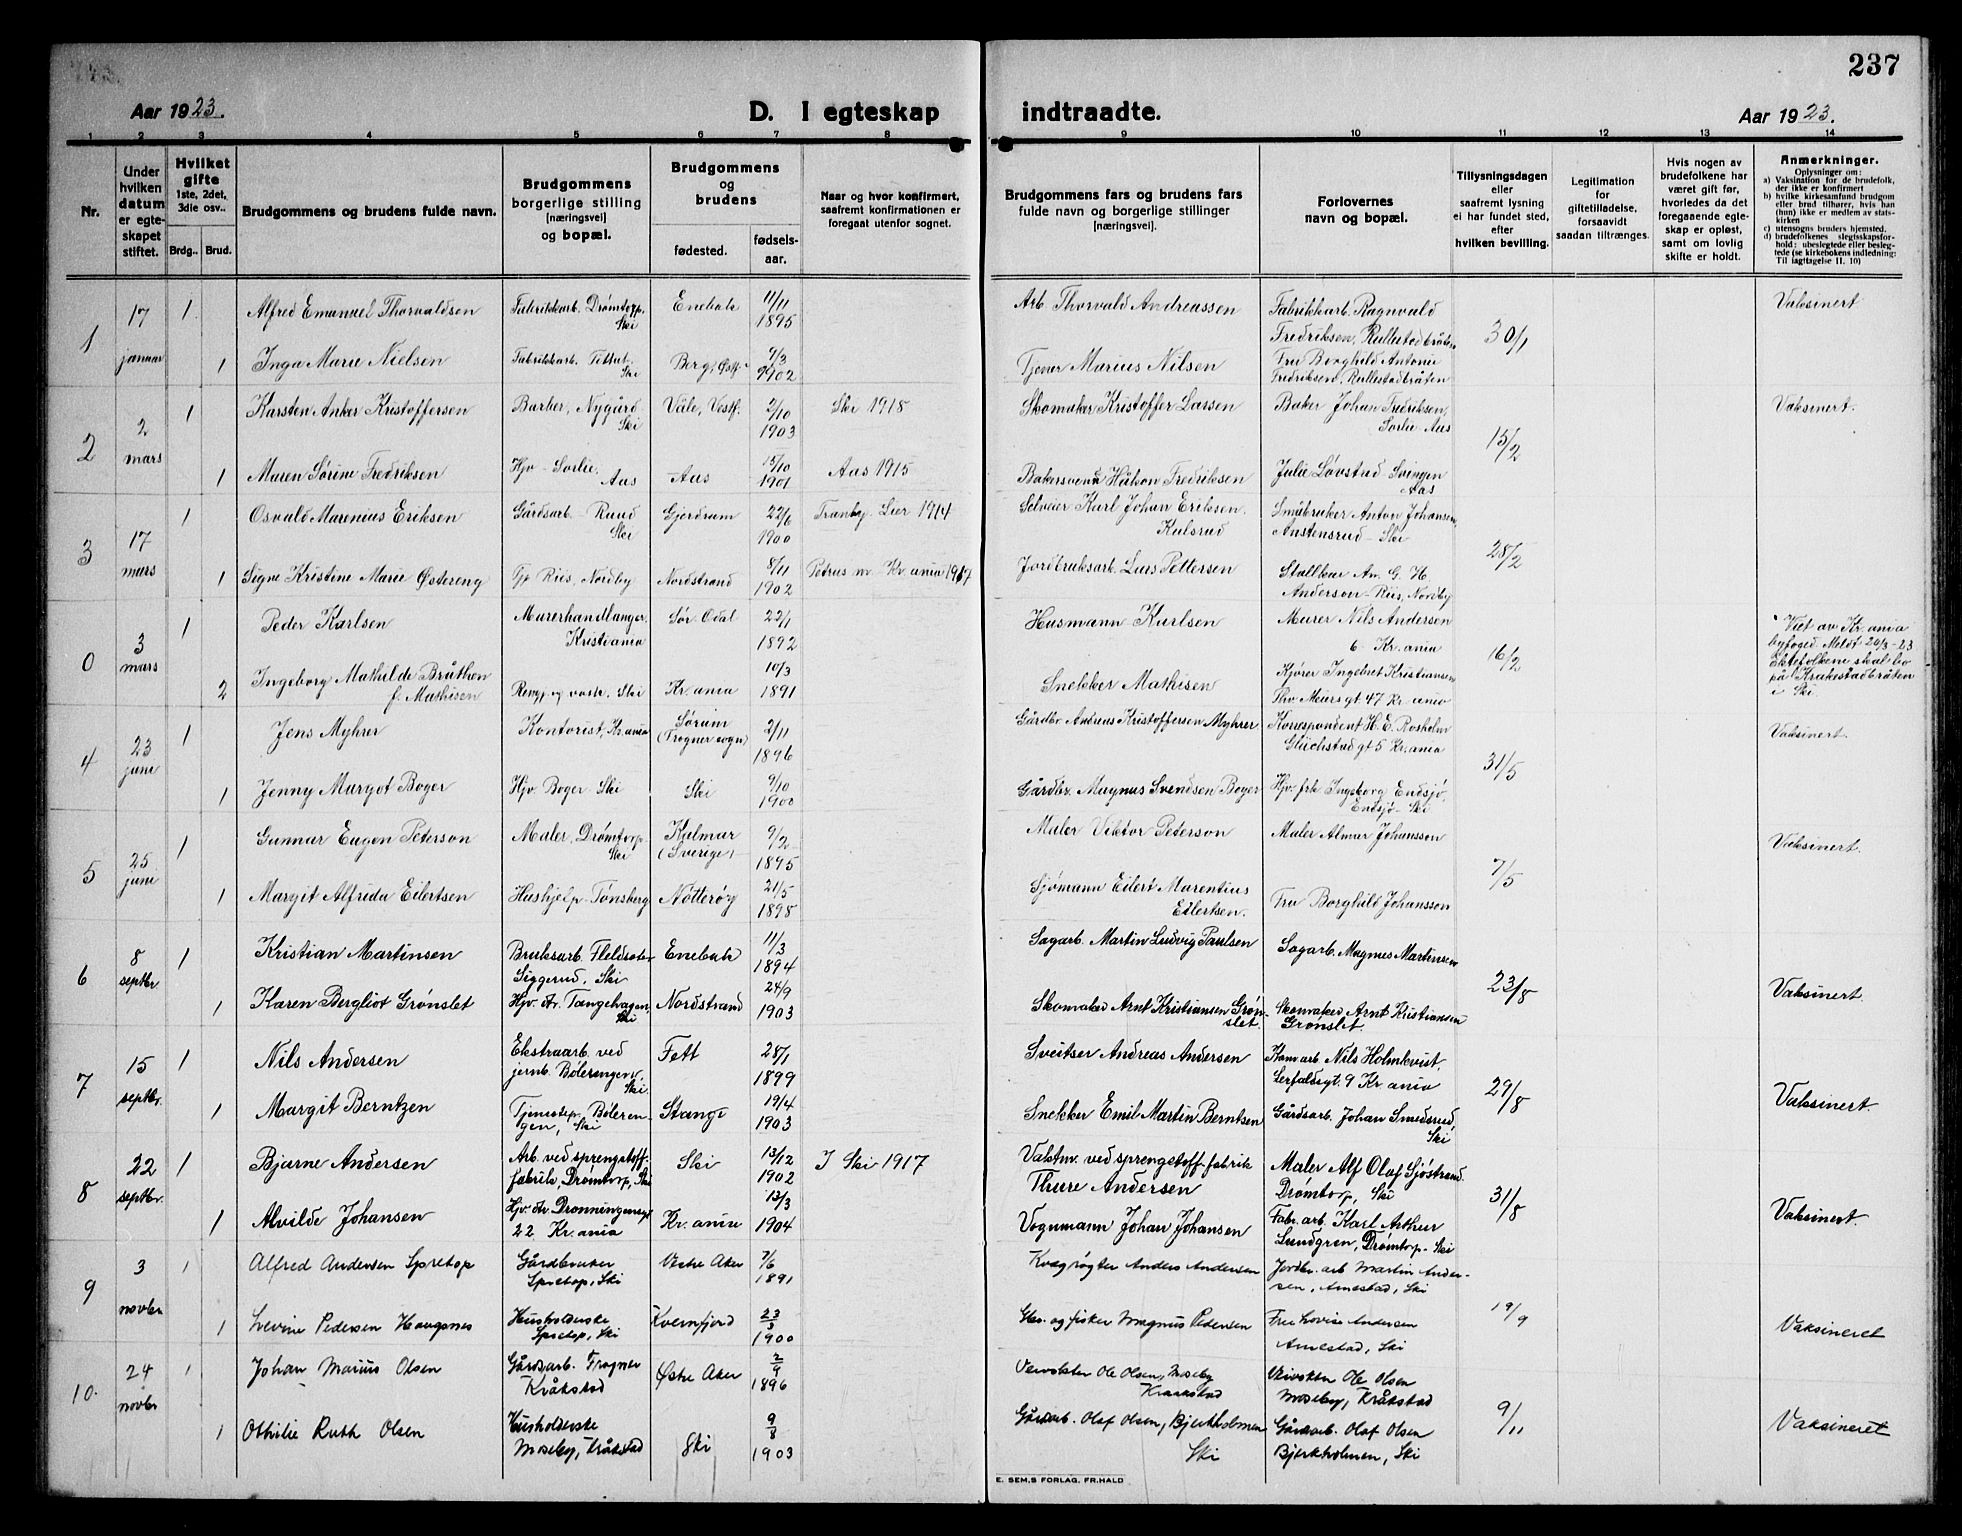 237
Aar 1923.
D. I egteskap indtraadte.
Aar 1923.
1 2 3 4 5 6 7 8 9 10 11 12 13 14
Nr.
Under hvilken datum er egteskapet stiftet.
Hvilket gifte
1ste, 2det, 3die osv..
Brdg.. Brud.
Brudgommens og brudens fulde navn.
Brudgommens
borgerlige stilling
[næringsvei]
og bopæl.
Brudgommens
og
brudens
fødested.
fødsels-
aar.
Naar og hvor konfirmert,
saafremt konfirmationen er
foregaat utenfor sognet.
Brudgommens fars og brudens fars
fulde navn og borgerlige stillinger
[næringsvei].
Forlovernes
navn og bopæl.
Tillysningsdagen
eller
saafremt lysning
ei har fundet sted,
efter
hvilken bevilling.
Legitimation
for
giftetilladelse,
forsaavidt
saadan tiltrænges.
Hvis nogen av
brudefolkene har
været gift før,
hvorledes da det
foregaaende egte-
skap er opløst,
samt om lovlig
skifte er holdt.
Anmerkninger.
Oplysninger om:
a) Vaksination for de brudefolk,
der ikke er konfirmert
b) hvilke kirkesamfund brudgom
eller brud tilhører, hvis han
(hun) ikke er medlem av stats-
kirken
c) utensogns bruders hjemsted.
d) brudefolkenes slegtsskapsfor-
hold: ubeslegtede eller besleg-
tede (se kirkebokens indledning:
Til iagttagelse II. 10)
1 17 januar
1 Alfred Emanuel Thorvaldsen Fabrikkarb. Drømtorp, Ski Enebak 11/11 1895
Arb Thorvald Andreassen Fabrikkarb. Ragnvald Fredriksen, Rullestadbråten 30/1 Vaksinert.
1 Inga Marie Nielsen Fabrikkarb. Ski Berg, Østf. 9/3 1902
Tjener Marius Nilsen Fru Borghild Antonie Fredriksen, Rullestadbråten
2 2 mars
1 Karsten Anker Kristoffersen Barber, Nygård Ski Våle, Vestf. 2/10 1903 Ski 1918
Skomaker Kristoffer Larsen Baker Johan Fredriksen, Sorlie Aas 15/2 Vaksinert.
1 Maren Sørine Fredriksen Hjv - Sorlie, Aas Aas 15/10 1901 Aas 1915
Bakersvenn Håkon Fredriksen Julie Løvstad Svingen Aas
3 17 mars
1 Osvald Marenius Eriksen Gårdsarb - Ruud Ski Gjerdrum 22/6 1900 Tranby - Lier 1914
Selveier Karl Johan Eriksen. Kulsrud Småbruker Anton Johansen, Austensrud - Ski 28/2
1 Signe Kristine Marie Østereng Tjp Riis, Nordby Nordstrand 8/11 1902 Petrus m. Kr.ania 1917
Jordbruksarb. Lars Pettersen Stallkar An. G. H. Anderson - Riis, Nordby
0 3 mars
1 Peder Karlsen Murerhandlanger. Kristiania Sør. Odal 22/1 1892
Husmann Karlsen Murer Nils Andersen 6 Kr.ania 16/2
Viet av Kr.ania byfoged. Meldt 24/3-23 Ektefolkene skal bo på Kråkestadbråten i Ski.
2 Ingeborg Mathilde Bråthen f. Mathisen Rengj. og vask. Ski Kr.ania 10/3 1891
Snekker Mathisen Kjører Ingebret Kristiansen Thv. Meiers gt. 47 Kr. ania
4 23 juni
1 Jens Myhrer Kontorist, Kr.ania Sørum (Frogner sogn) 2/11 1896
Gårdbr. Andreas Kristoffersen Myhrer Korrespondent H. E. Rosholm Glückstad gt 5 Kr.ania 31/5 Vaksinert.
1 Jenny Margot Boger Hjv. Boger - Ski Ski 9/10 1900
Gårdbr. Magnus Svendsen Boger Hjv. frk Ingeborg Endsjø, Endsjø - Ski
5 25. juni
1 Gunnar Eugen Peterson Maler, Drømtorp Ski Kalmar (Sverige) 9/2 1895
Maler Viktor Peterson Maler Almar Johansson 7/5 Vaksinert.
1 Margit Alfrida Eilertsen Hushjelp - Tønsberg Nøtterøy 21/5 1898
Sjømann Eilert Marentius Eilertsen. Fru Borghild Johansson
6 8 septbr
1 Kristian Martinsen Bruksarb. Fleldsoter Siggerud, Ski Enebak 11/3 1894
Sagarb. Martin Ludvig Paulsen Sagarb. Magnus Martinsen 23/8 Vaksinert.
1 Karen Bergliot Grønslet Hjv. dr. Tangehagen, Ski Nordstrand 24/9 1903
Skomaker Arnt Kristiansen Grønslet. Skomaker Arnt Kristiansen Grønslet.
7 15 septbr.
1 Nils Andersen Ekstraarb. ved jernb. Bølerengen, Ski. Fett 28/1 1899
Sveitser Andreas Andersen Kom.arb Nils Holmkvist. Lerfaldsgt. 9 Kr ania 29/8 Vaksinert.
1 Margit Berntzen Tjenestep. Bølerengen, Ski Stange 19/4 1903
Snekker Emil Martin Berntsen Gårdsarb. Johan Smedsrud, Ski
8 22 septbr.
1 Bjarne Andersen Arb. ved sprengstoff-fabrik, Drømtorp, Ski Ski 13/12 1902 I Ski 1917
Vaktm. ved sprengstoff-fabrik Thure Andersen Maler Alf Olaf Sjøstrand. Drømtorp, Ski 31/8
1 Alvilde Johansen Hjv. dr. Dronningensgt 22 Kr.ania Kr.ania 13/3 1904
Vognmann Johan Johansen Fabr. arb. Karl Arthur Lundgren, Drømtorp - Ski Vaksinert.
9 3 novbr
1 Alfred Andersen Spretop Gårdbruker Spretop, Ski Vestre Aker 7/6 1891
Kvægrøgter Anders Andersen Jordbr. arb Martin Andersen, Arnestad, Ski 19/9
1 Levine Pedersen Haugsnes Husholderske Spretop, Ski Kvernfjord 23/3 1900
Gbr. og fisker Magnus Pedersen Fru Lovise Andersen Arnestad, Ski Vaksineret
10. 24 novbr
1 Johan Marius Olsen Gårdsarb. Frogner Kråkstad Østre Aker 2/9 1896
Veivokter Ole Olsen, Moseby Kraakstad Veivokter Ole Olsen Moseby, Kråkstad 9/11
1 Othilie Ruth Olsen Husholderske Moseby, Kråkstad Ski 9/8 1903
Gårdsarb. Olaf Olsen, Bjerkholmen Ski Gårdsarb. Olaf Olsen Bjerkholmen, Ski Vaksineret
E. SEM.S FORLAG. FR.HALD